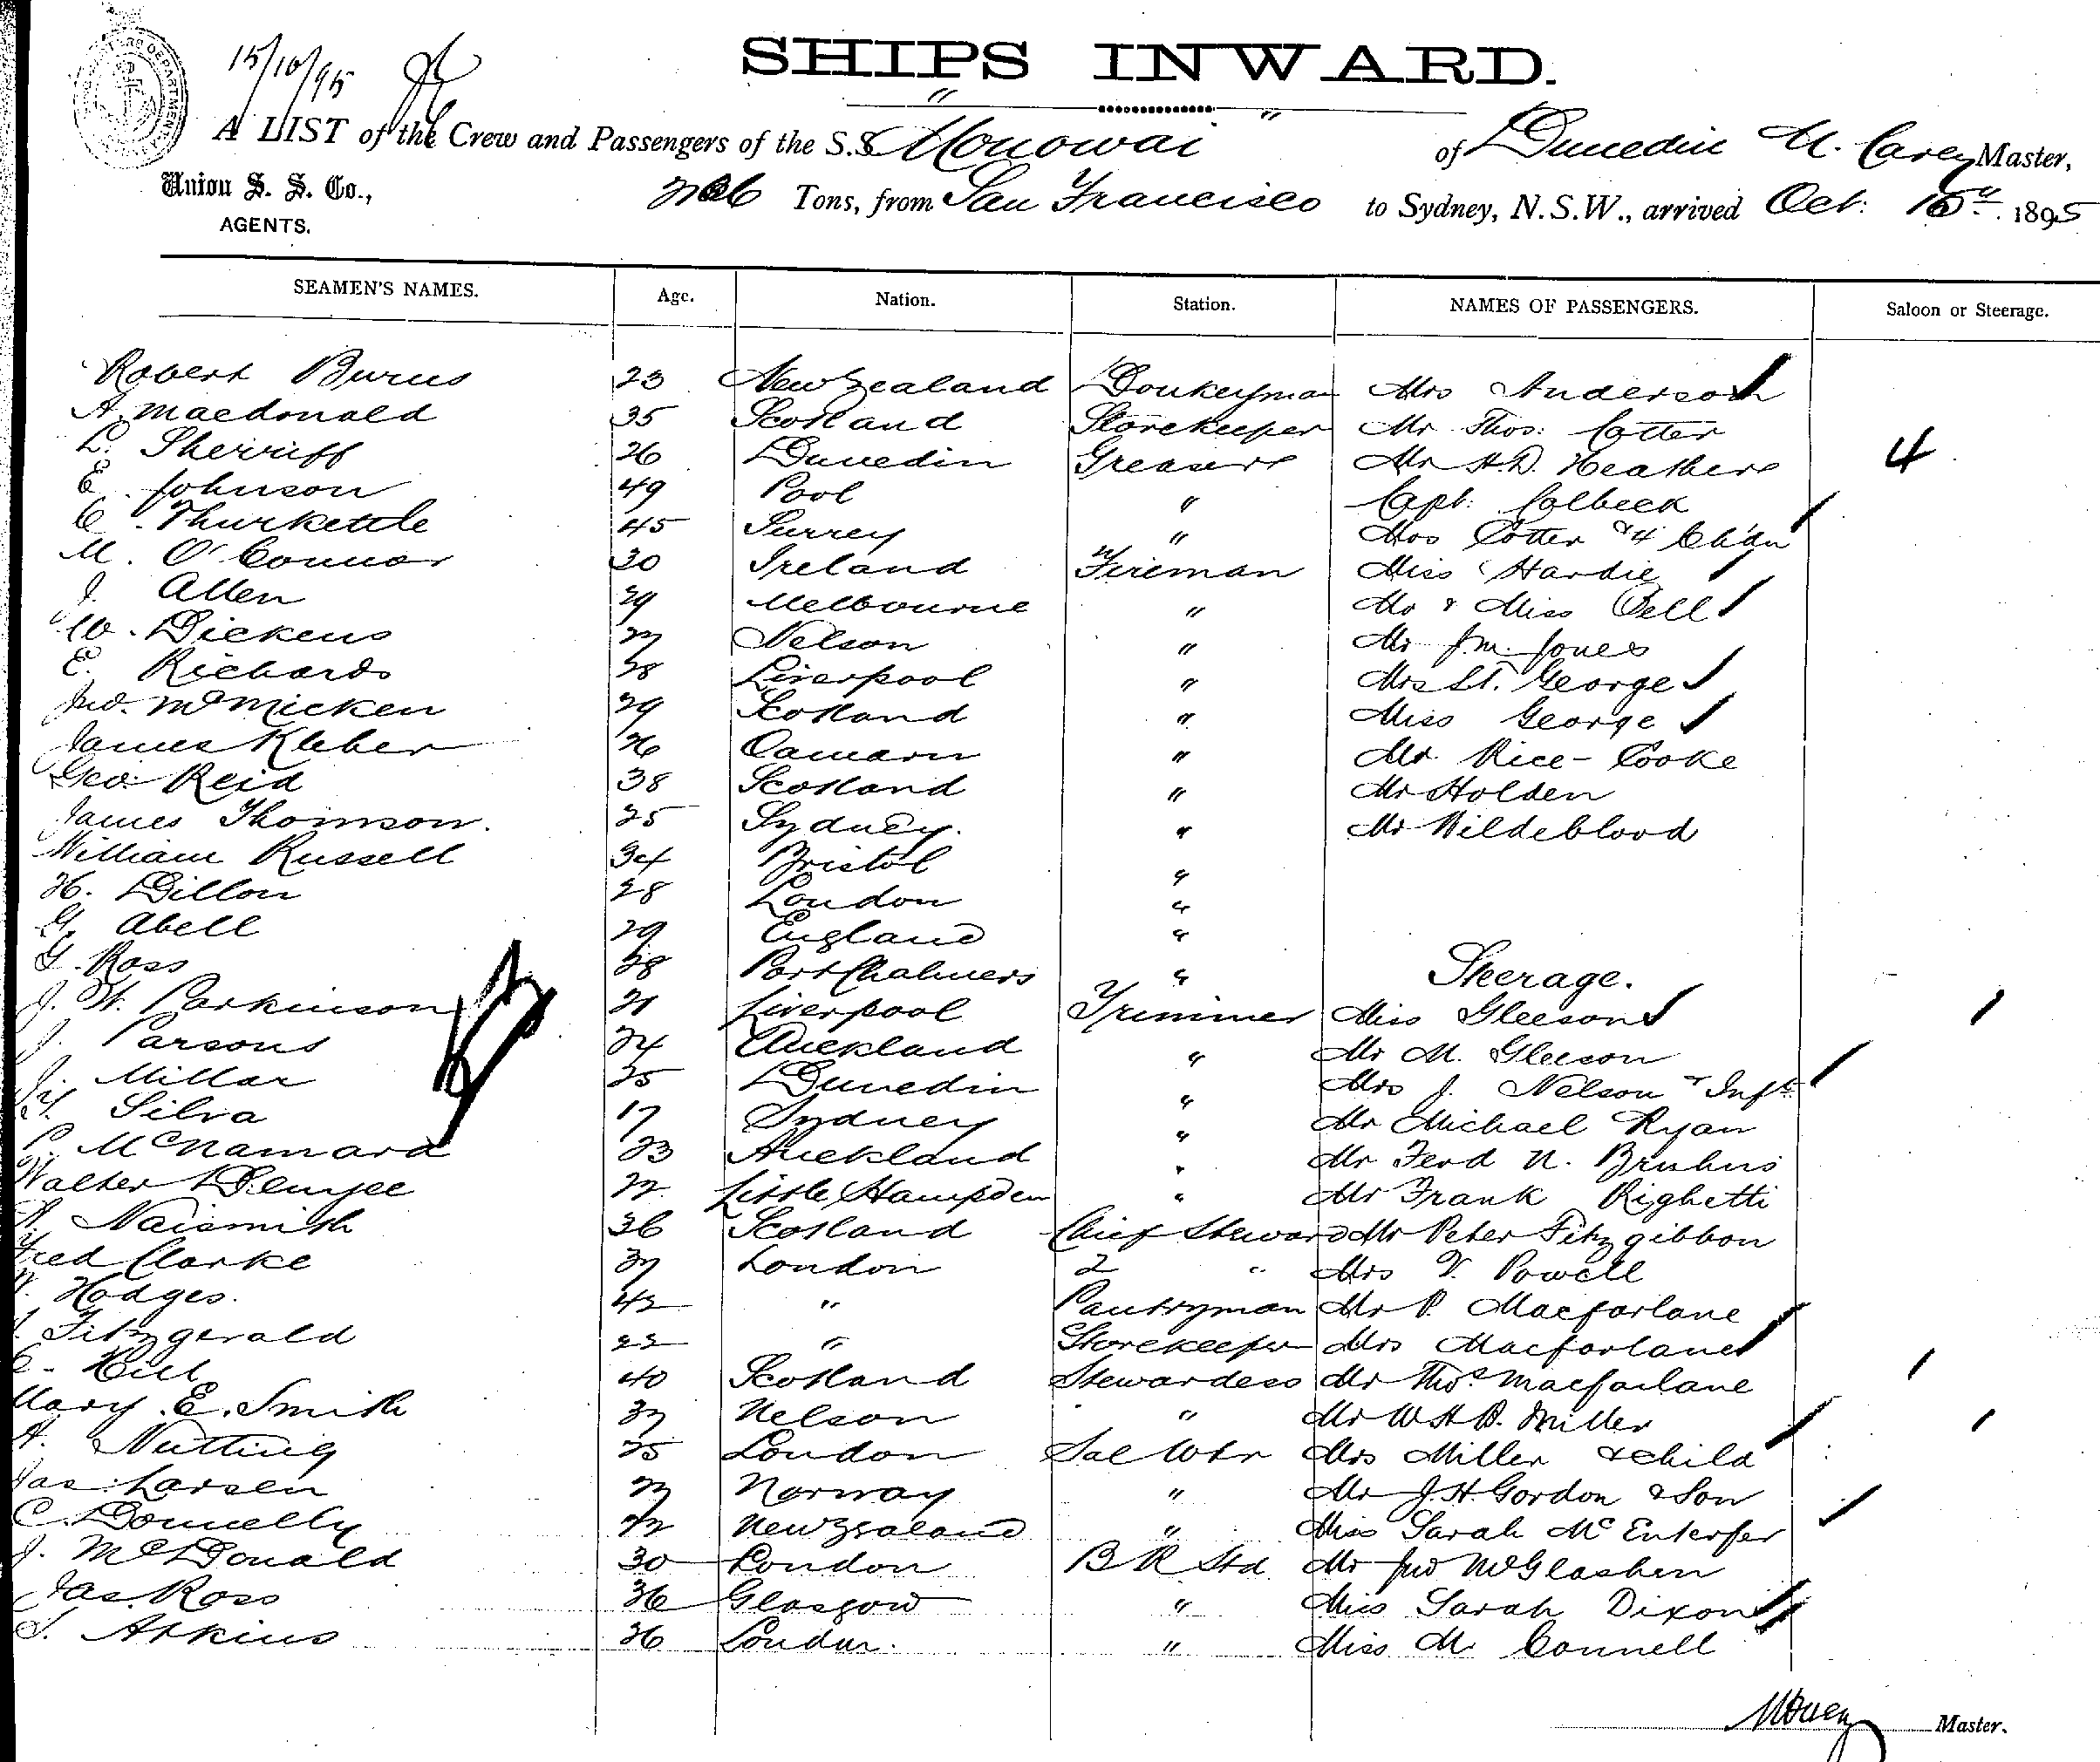 15/10/95
SHIPS INWARD.
A LIST of the Crew and Passengers of the S.S. Monowai of Dunedin M. Carey Master,
Union S. S. Co., AGENTS.
Tons, from San Francisco to Sydney, N.S.W., arrived Oct: 15th 1895
SEAMEN'S NAMES. Age. Nation. Station. NAMES OF PASSENGERS. Saloon or Steerage.
Robert Burns 23 New Zealand Donkeyman Mrs Anderson
A. Macdonald 35 Scotland Storekeeper Mr Thos: Cotter
L. Sherriff 26 Dunedin Greasers Mr H.D. Heather 4
E. Johnson 49 Pool " Capt: Colbeck
C. Thurkettle 45 Surrey " Mrs Cotter & 4 Ch'dn
M. O'Connor 30 Ireland Fireman Miss Hardie
J. Allen 29 Melbourne " Mr & Miss Bell
W. Dickens 27 Nelson " Mr J.M. Jones
E. Richards 28 Liverpool " Mrs St. George
Jno. McMicken 29 Scotland " Miss George
James Kleber 26 Oamaru " Mr. Rice-Cooke
Geo: Reid 38 Scotland " Mr Holden
James Thomson. 25 Sydney. " Mr Wildeblood
William Russell 34 Bristol "
H. Dillon 28 London "
G. Abell 29 England "
G. Ross 28 Port Chalmers " Steerage.
J. W. Parkinson 21 Liverpool Trimmer Miss Gleeson 1
J. Parsons 24 Auckland " Mr M. Gleeson
J. Millar 25 Dunedin " Mrs J. Nelson & Inft
Silva 17 Sydney " Mr Michael Ryan
P. McNamara 23 Auckland " Mr Ferd N. Bruhns
Walter 22 Little Hampden " Mr Frank Righetti
Naismith 36 Scotland Chief Steward Mr Peter Fitzgibbon
Fred Clarke 37 London 2 " Mrs V. Powell
Hodges. 42 " Pantryman Mr P. Macfarlane
Fitzgerald 22 " Storekeeper Mrs Macfarlane
C. Hill 40 Scotland Stewardess Mr Thos. Macfarlane 1
Mary E. Smith 37 Nelson " Mr W.H.B. Miller 1
A. Nutting 25 London Sal Wtr Mrs Miller & child
Jas. Larsen 27 Norway " Mr J.H. Gordon & Son
C. Donnelly 22 New Zealand " Miss Sarah McEnterfer
J. McDonald 30 London B R Std. Mr Jno McGlashen
Jas. Ross 36 Glasgow " Miss Sarah Dixon
S. Atkins 26 London. " Miss M. Connell
MCarey Master.